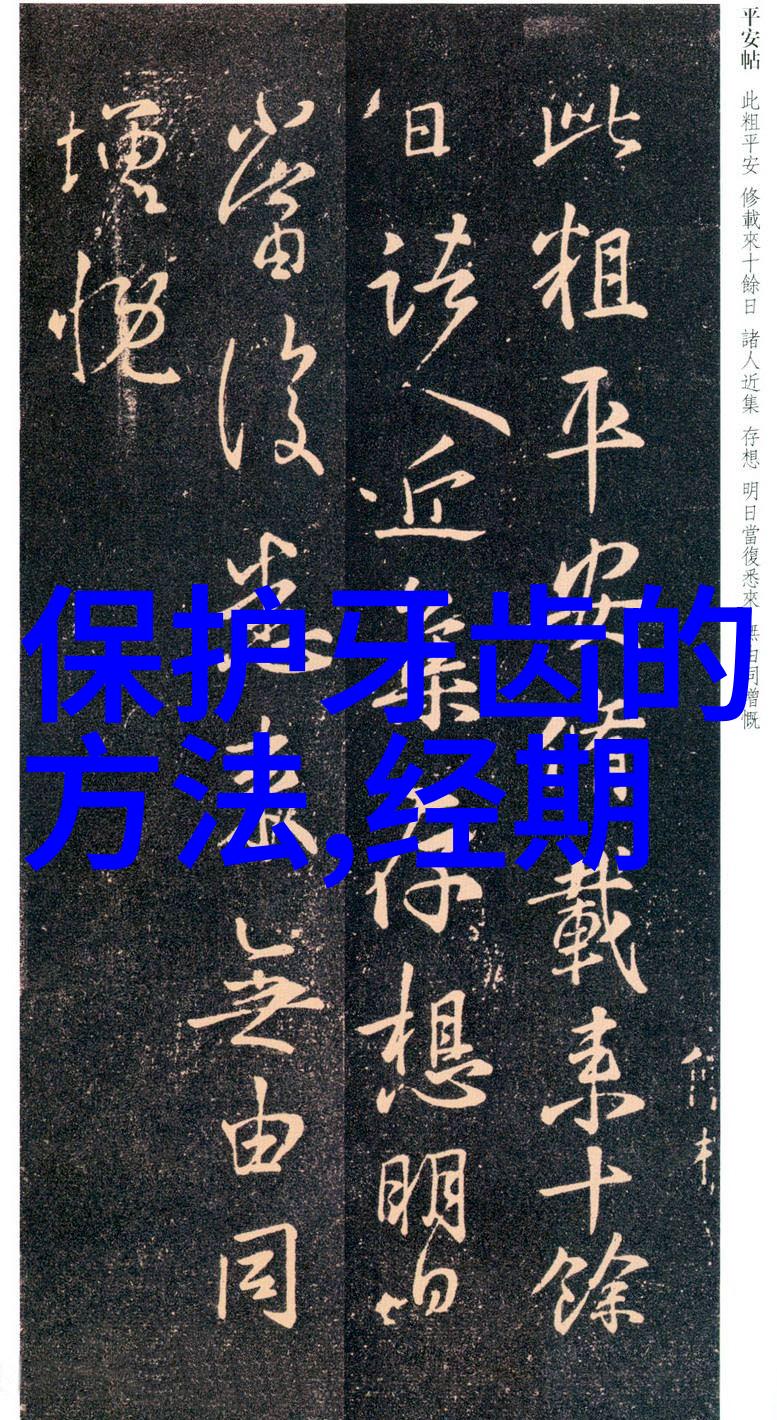 平安帖 此粗平安 修載來十餘日 諸人近集 存想 明日當復悉來 無由同增慨
此粗平安脩載来十餘
日諸人近集存想明日
當復悉来無由同
增慨
保护牙齿的
方法,经期